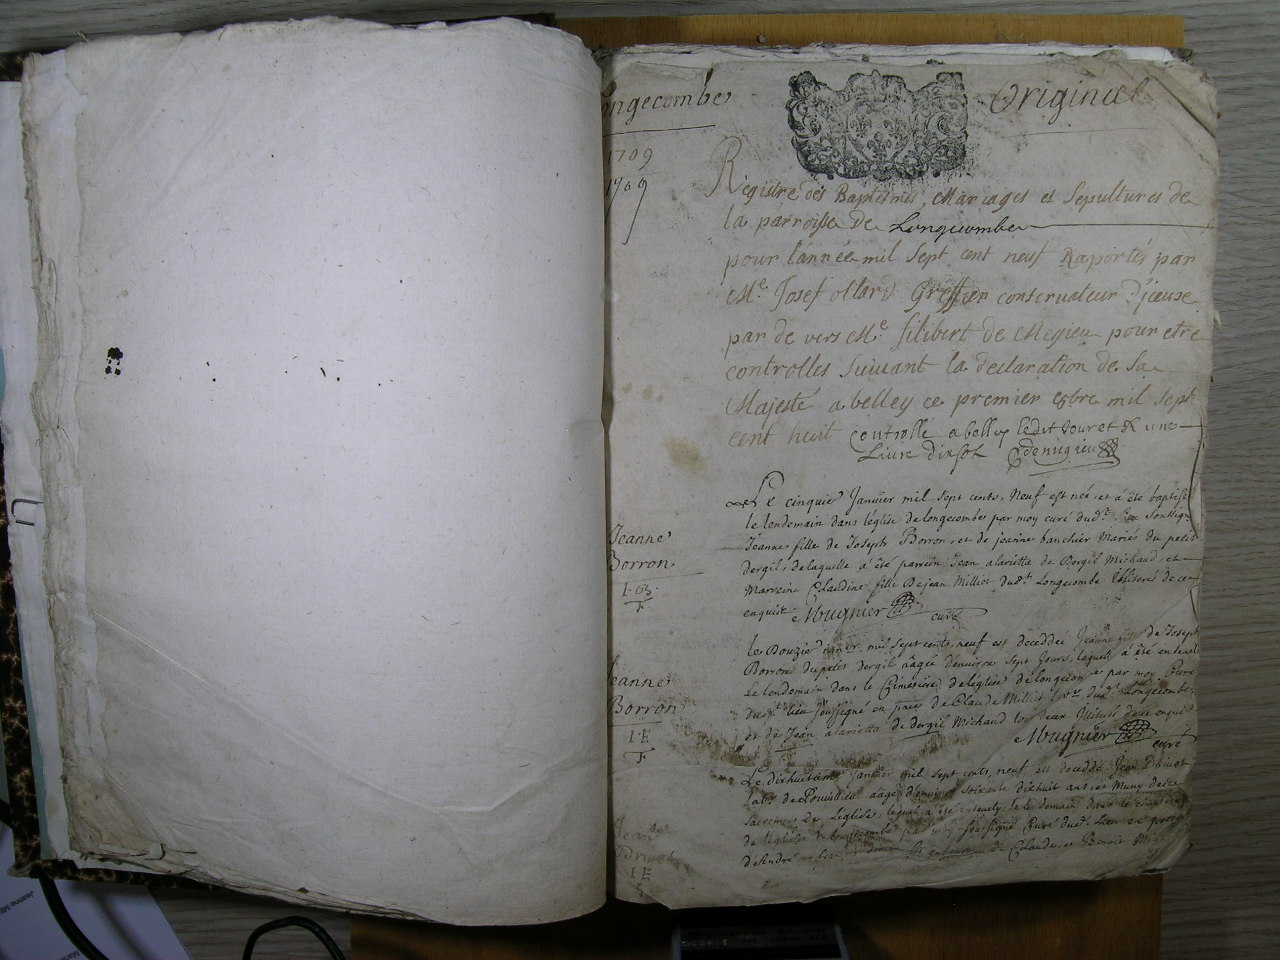 Longecombe
Original
1709
1709
Registre des Baptesmes, Mariages et Sepultures de
la parroisse de Longecombe
pour l'année mil sept cent neuf Raportés par
Me. Josef ollard Greffier conservateur d'iceuse
par de vers Me filibert de Megieu pour etre
controlles suivant la declaration de sa
Majesté a belley ce premier 8bre mil sept
cent huit controllé a belley ledit jour et
Livre dix sol Demigieu
Le cinquie Janvier mil sept cents. Neuf est née et à été baptisé
le londemain dans l'église de longecombe par moy curé dud.t lieu soussigné
Jeanne fille de Joseph Borron, et de jeanne banchier Mariés du petit
dergil, de laquelle a été parrein Jean alarietta de Dergil Michaud, et
Marreine Claudine fille De jean Milliot dud.t Longecombe Illiterés de ce
enquis. Mugnier curé
Jeanne
Borron
le Douzie Janvier mil sept cents neuf est deceddé Jeanne de Joseph
Borron du petit dergil aagée d'environ sept Jours, laquelle a été ensevelie
le londemain dans le Cimetière de l'eglise de longecombe par moy Curé
dud.t lieu soussigné en pnce de Claude Milliot dud.t Longecombe
et de Jean alarietta de dergil Michaud tous deux Illiterés de ce enquis
Mugnier curé
Jeanne
Borron
I E
Le dixhuitieme Janvier mil sept cents neuf est deceddé Jean
aagé d'environ soixante dixhuit ans et Muny de
Sacremens de l'eglise, lequel a été ensevely le londemain dans le
de l'église de longecombe par moy soussigné Curé dud.t lieu en pnce
d'André Claude, et Benoit
Jean
I E